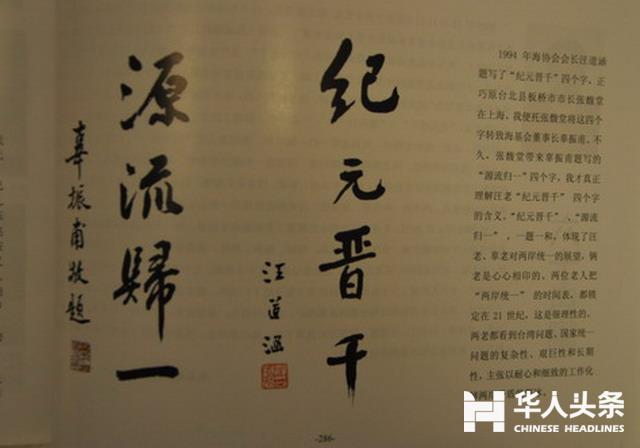 纪元晋千
汪道涵
源流歸一
辜振甫敬題
1994 年海协会会长汪道涵
题写了“纪元晋千”四个字，正
巧原台北县板桥市市长张馥堂
在上海，我便托张馥堂将这四个
字转致海基会董事长辜振甫。不
久，张馥堂带来辜振甫题写的
“源流归一”四个字，我才真正
理解汪老“纪元晋千” 四个字
的含义。“纪元晋千”、“源流
归一”，一题一和，体现了汪
老、辜老对两岸统一的展望，俩
老是心心相印的。两位老人把
“两岸统一” 的时间表，都锁
定在 21 世纪，这是很理性的。
两老都看到台湾问题、国家统一
问题的复杂性、艰巨性和长期
性，主张以耐心和细致的工作化
解两岸
-286-
华人头条
CHINESE HEADLINES